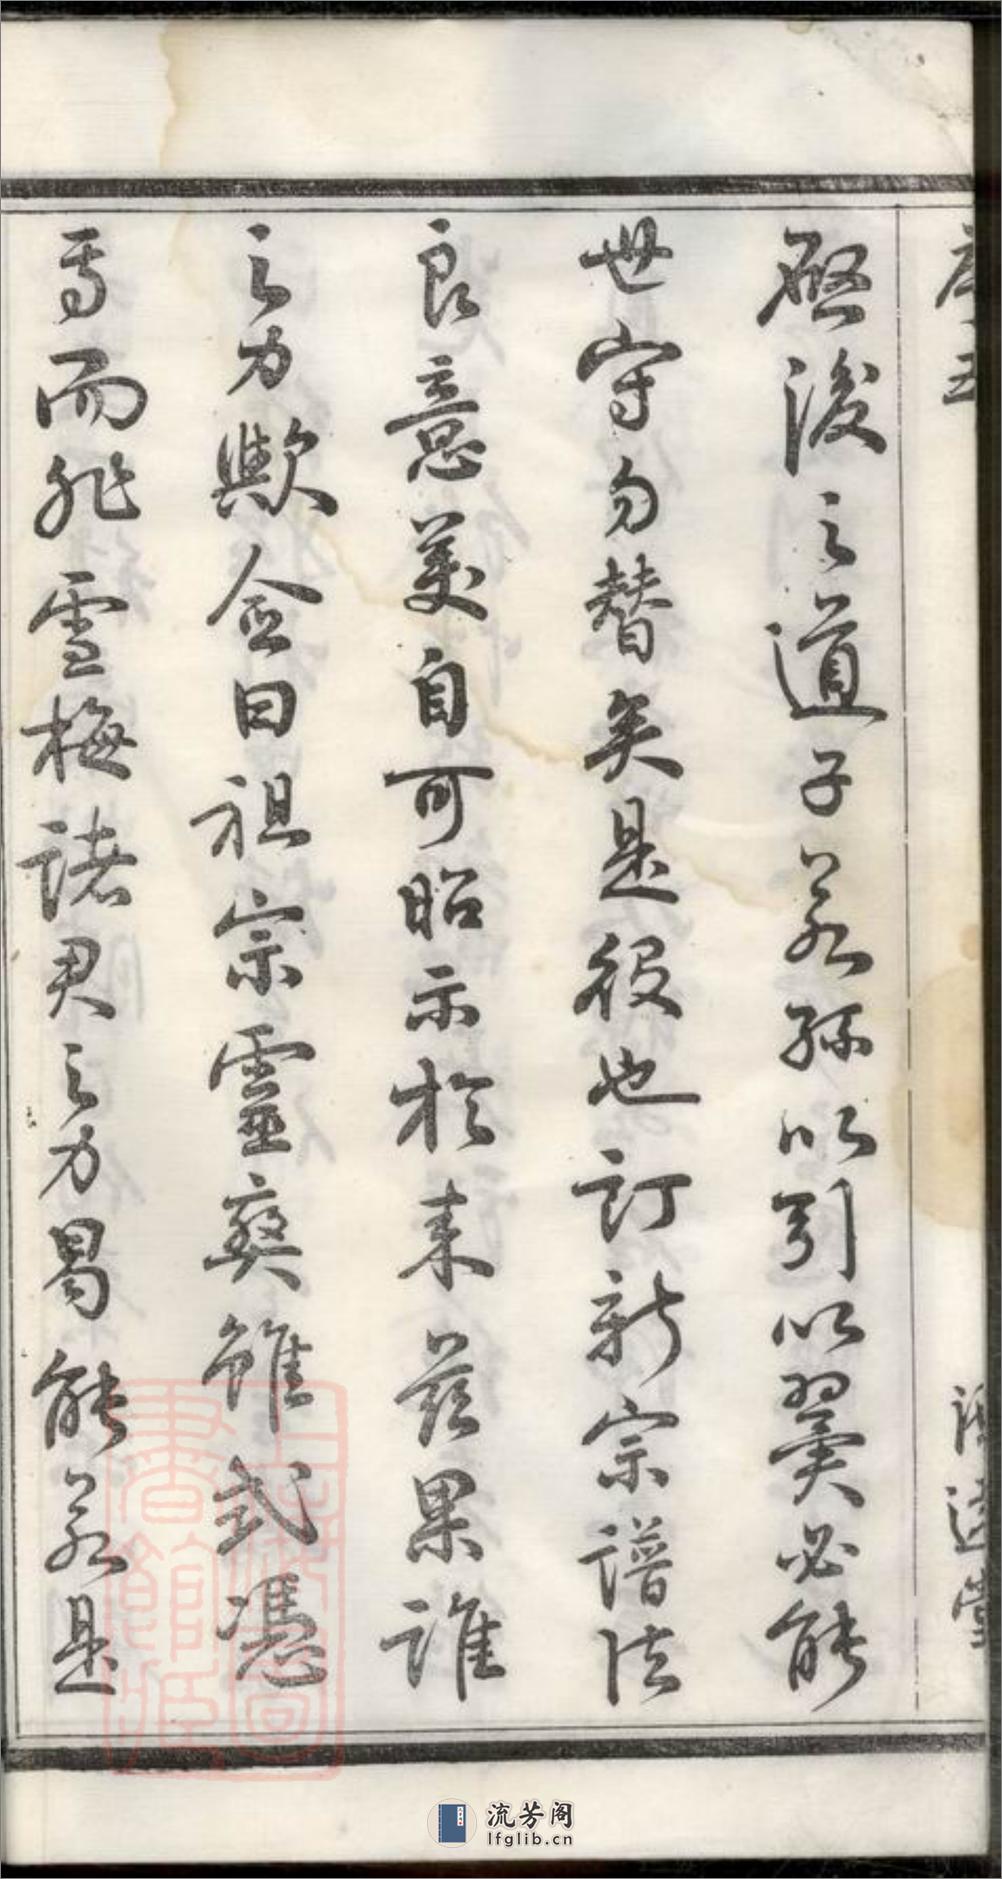 啟後之道子若孫以引以翼必能
世守勿替矣是役也訂新宗譜法
良意美自可昭示於來茲果誰
之力歟僉曰祖宗靈爽雖式憑
焉而非雪梅諸君之力曷能若是
流芳阁
lfglib.cn